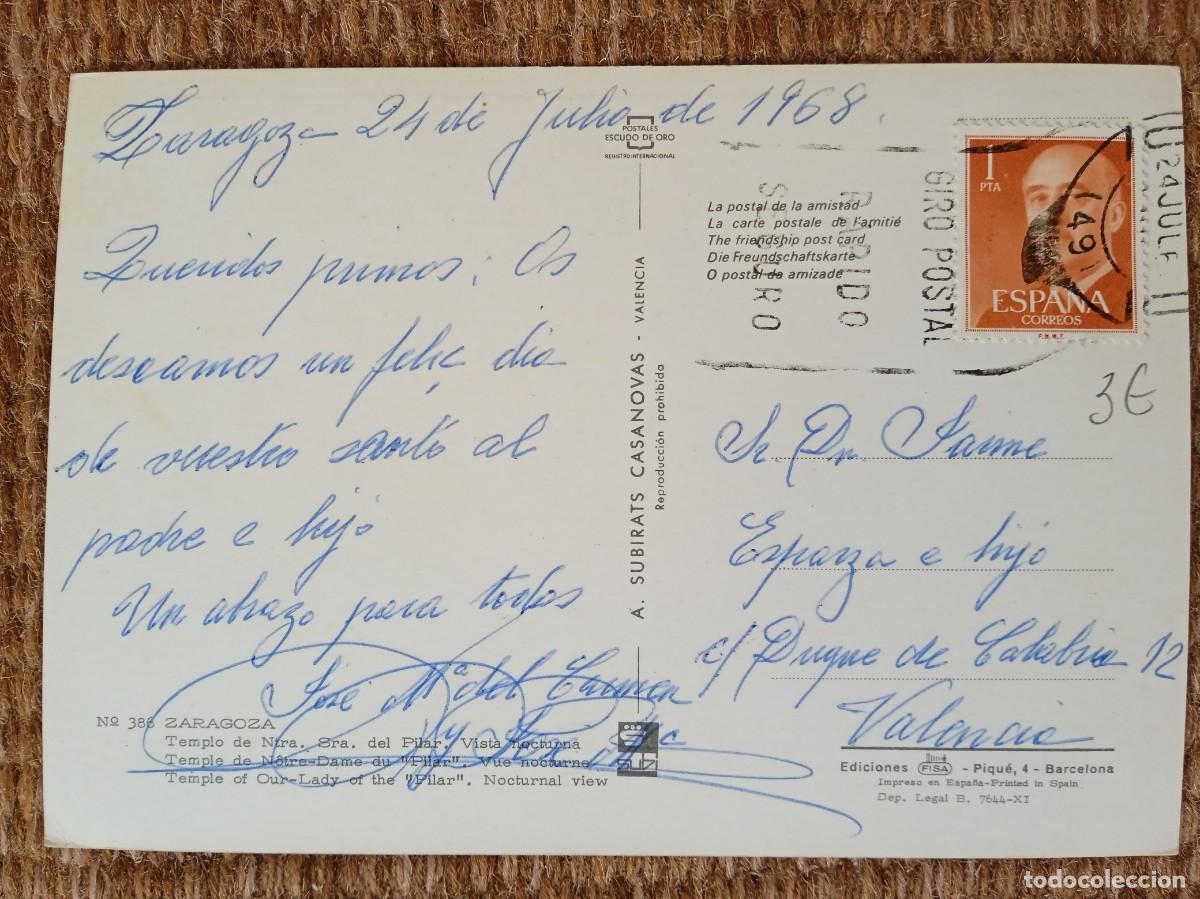 Zaragoza 24 de Julio de 1968.
Queridos primos: Os
deseamos un feliz dia
de vuestro santo al
padre e hijo
Un abrazo para todos
José Mª del Carmen
y
Nº 388 ZARAGOZA
Templo de Ntra. Sra. del Pilar. Vista nocturna
Temple de Nôtre-Dame du "Pilar". Vue nocturne
Temple of Our-Lady of the "Pilar". Nocturnal view
POSTALES
ESCUDO DE ORO
REGISTRO INTERNACIONAL
A. SUBIRATS CASANOVAS - VALENCIA
Reproducción prohibida
SUB
La postal de la amistad
La carte postale de l'amitié
The friendship post card
Die Freundschaftskarte
O postal da amizade
GIRO POSTAL
RAPIDO
SEGURO
1
PTA
ESPAÑA
CORREOS
F.N.M.T.
24 JUL
3€
Sr. Dn. Jaime
Esparza e hijo
c/ Duque de Calabria 12
Valencia
Ediciones FISA - Piqué, 4 - Barcelona
Impreso en España-Printed in Spain
Dep. Legal B. 7644-XI
todocoleccion